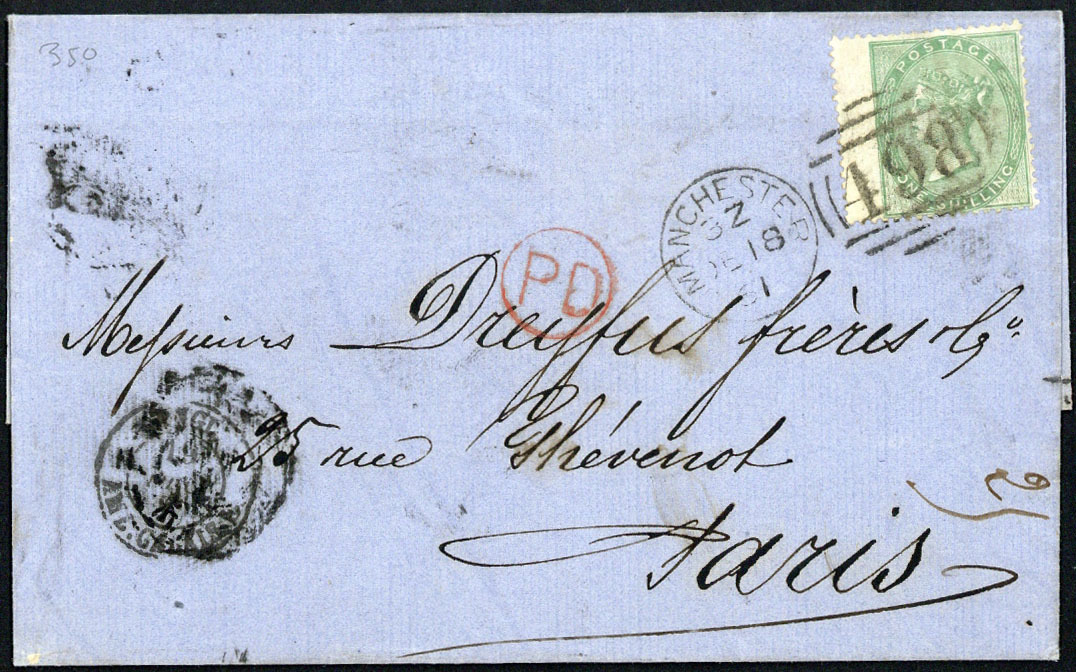 350
POSTAGE
ONE SHILLING
498
MANCHESTER
3Z
DE 18
61
PD
Messieurs Dreyfus frères & Cº
25 rue Thévenot
Paris
AMB. CALAIS
2/